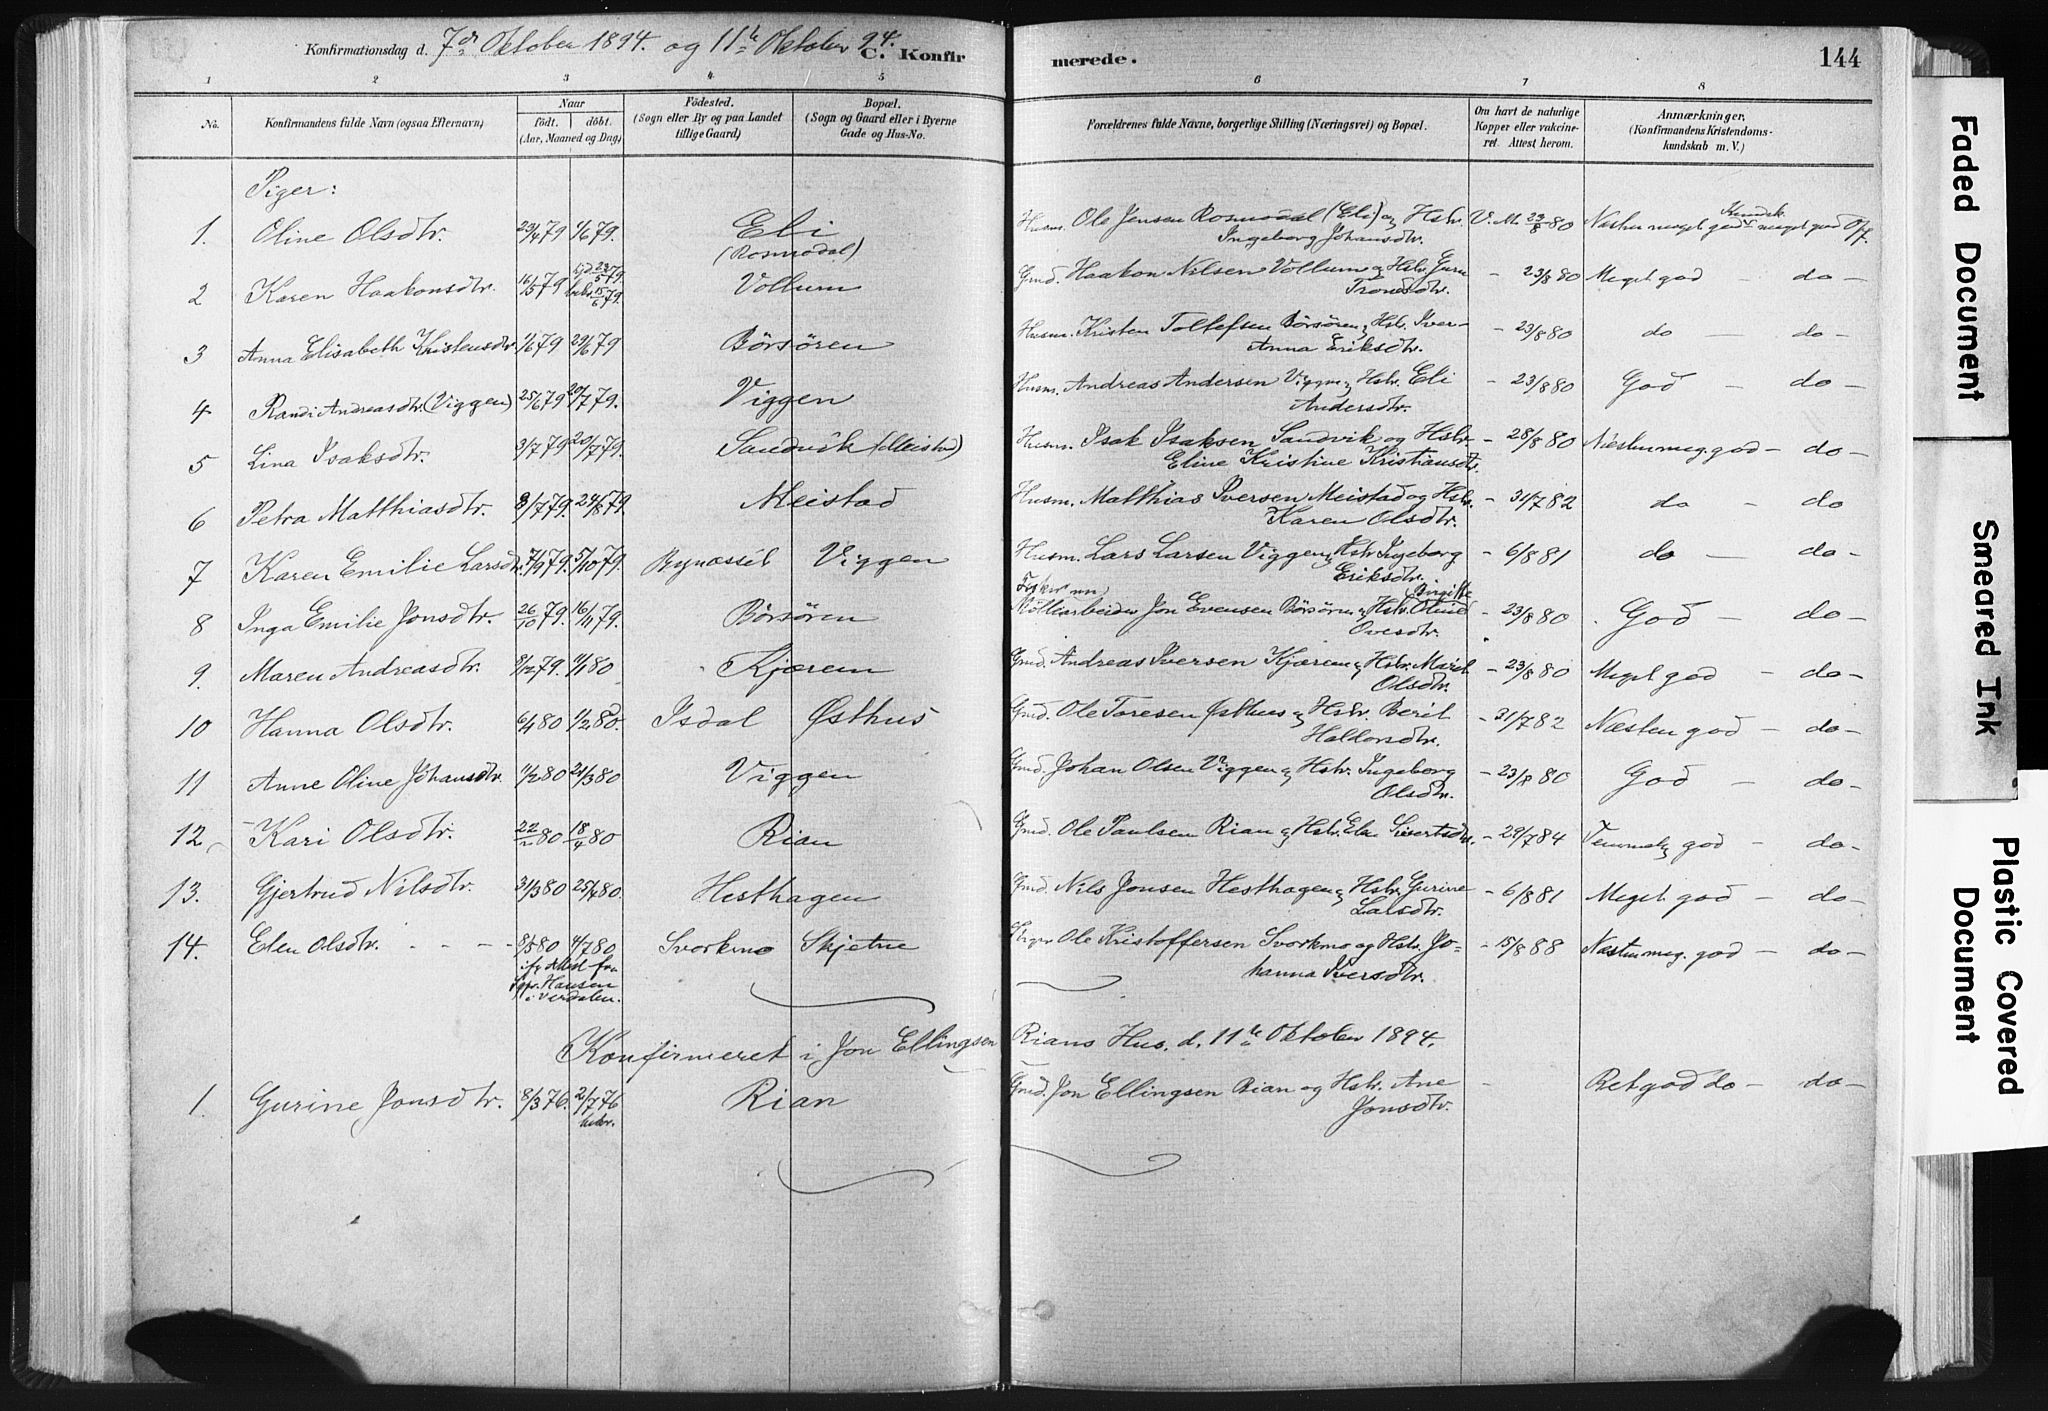 Konfirmationsdag d. 7de Oktober 1894. og 11te Oktober 94. C. Konfirmerede. 144
1 2 3 4 5 6 7 8
No. Konfirmandens fulde Navn (ogsaa Efternavn) Naar födt. döbt. (Aar, Maaned og Dag) Födested. (Sogn eller By og paa Landet tillige Gaard) Bopæl. (Sogn og Gaard eller i Byerne Gade og Hus-No. Forældrenes fulde Navne, borgerlige Stilling (Næringsvei) og Bopæl. Om havt de naturlige Kopper eller vakcineret. Attest herom. Anmærkninger, (Konfirmandens Kristendomskundskab m. V.)
Piger:
1. Oline Olsdtr. 23/4 79 1/6 79. Eli (Rosmodal) Husm. Ole Jensen Rosmodal (Eli) og Hstr. Ingeborg Johansdtr. V. M. 23/8 80 Næsten meget god Kundsk. meget god Off.
2 Karen Haakonsdtr. 16/5 79 Gd. 23/5 79. bekr. 15/6 79. Vollum Gmd. Haakon Nilsen Vollum og Hstr. Guru Tronsdtr. - 23/8 80 Meget god - do -
3 Anna Elisabeth Kristensdtr. 1/6 79 29/6 79 Börsören Husm. Kristen Tollefsen Börsören og Hstr. Iver-Anna Eriksdtr. - 23/8 80 do - do -
4 Randi Andreasdtr. (Viggen) 25/6 79 20/7 79. Viggen Husm. Andreas Andersen Viggen og Hstr. Eli Andersdtr. - 23/8 80 God - do -
5 Lina Isaksdtr. 3/7 79 20/7 79. Sandvik (Meistad) Husm. Isak Isaksen Sandvik og Hstr. Eline Kristine Kristiansdtr. - 28/8 80 Næsten meg. god - do -
6 Petra Matthiasdtr. 8/7 79. 24/8 79. Meistad Husm. Matthias Iversen Meistad og Hstr. Karen Olsdtr. - 31/7 82 do - do
7 Karen Emilie Larsdtr. 7/9 79. 5/10 79. Bynæsset Viggen Husm. Lars Larsen Viggen og Hstr. Ingeborg Eriksdtr. - 6/8 81 do - do -
8 Inga Emilie Jonsdtr. 26/10 79. 16/11 79. Börsören Jon Evensen Börsören og Hstr. Birgitte Oline Ovesdtr. - 23/8 80 God - do -
9. Maren Andreasdtr. 8/12 79. 1/1 80 Kjærem Gmd. Andreas Iversen Kjærem og Hstr. Marit Olsdtr. - 23/8 80 Meget god - do -
10 Hanna Olsdtr. 6/1 80 1/2 80. Isdal Østhus Gmd. Ole Toresen Østhus og Hstr. Berit Haldorsdtr. - 31/7 82 Næsten god - do -
11 Anne Oline Johansdtr. 11/2 80 21/3 80 Viggen Gmd. Johan Olsen Viggen og Hstr. Ingeborg Olsdtr. - 23/8 80 God - do -
12 Kari Olsdtr. 22/2 80 18/4 80 Rian Gmd. Ole Paulsen Rian og Hstr. Elen Sivertsdtr. - 29/7 84 Temmelig god - do -
13. Gjertrud Nilsdtr. 31/3 80 25/4 80. Hesthagen Gmd. Nils Jonsen Hesthagen og Hstr. Gurine Larsdtr. - 6/8 81 Meget god - do -
14. Elen Olsdtr. - - - 8/5 80 4/7 80 ifg. Attest fra Sgpr. Hansen i Verdalen. Svorkmo Skjetne Ole Kristoffersen Svorkmo og Hstr. Johanna Iversdtr. - 15/8 88 Næsten meg. god - do -
Konfirmeret i Jon Ellingsen Rians Hus. d. 11te Oktober 1894.
1. Gurine Jonsdtr. 8/3 76. 2/7 76 Rian Gmd. Jon Ellingsen Rian og Hstr. Ane Jonsdtr. - Ret god do - do -
Faded Document
Smeared Ink
Plastic Covered Document